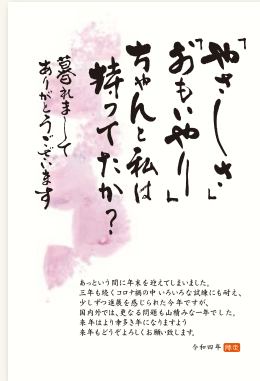 「やさしさ」
「おもいやり」
ちゃんと私は
持ってたか？
暮れまして
ありがとうございます
あっという間に年末を迎えてしまいました。
三年も続くコロナ禍の中いろいろな試練にも耐え、
少しずつ進展を感じられた今年ですが、
国内外では、更なる問題も山積みな一年でした。
来年はより幸多き年になりますよう
来年もどうぞよろしくお願い致します。
令和四年